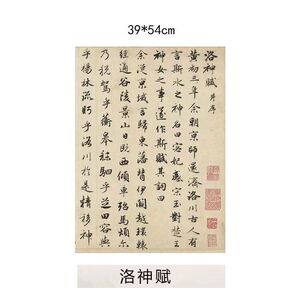 39*54cm
洛神賦 并序
黄初三年余朝京師還濟洛川古人有
言斯水之神名曰宓妃感宋玉對楚王
神女之事遂作斯賦其詞曰
余從京域言歸東藩背伊闕越轘轅
經通谷陵景山日既西傾車殆馬煩爾
乃税駕乎蘅皋秣駟乎芝田容與
乎楊林流眄乎洛川於是精移神
洛神赋